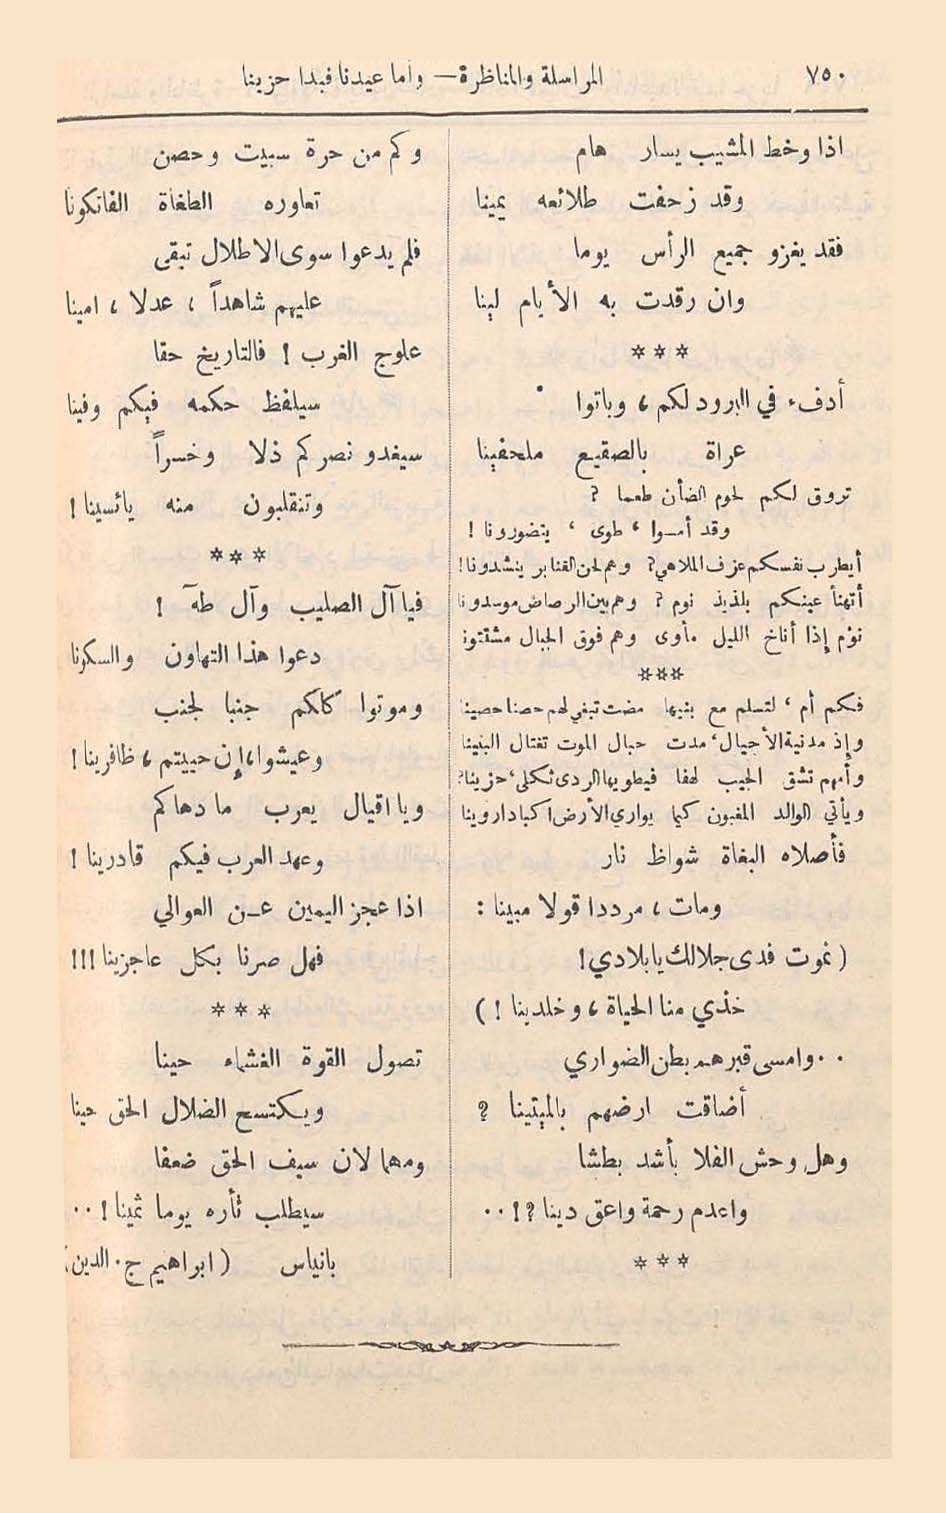 ٧٥٠ المراسلة والمناظرة — واما عيدنا فبدا حزينا
اذا وخط المشيب يسار هام
وقد زحفت طلائعه يمينا
فقد يغزو جميع الرأس يوما
وان رقدت به الأيام لينا
***
أدفء في البرود لكم ، وباتوا
عراة بالصقيع ملحفينا
تروق لكم لحوم الضأن طعما ؟
وقد أمسوا ، طوى ، يتضورونا !
أيطرب نفسكم عزف الملاهي؟ وهم لحن القنابر ينشدونا!
أتهنأ عينكم بلذيذ نوم ؟ وهم بين الرصاص موسدونا
نؤم إذا أناخ الليل مأوى وهم فوق الجبال مشتتونا
***
فكم أم ، لتسلم مع بنيها مضت تبغي لهم حصنا حصينا
وإذ مدنية الأجيال، مدت حبال الموت تغتال البنينا
وأمهم تشق الجيب لهفا فيطويها الردى ثكلى، حزينا؟
ويأتي الوالد المغبون كيما يواري الأرض اكبادا روينا
فأصلاه البغاة شواظ نار
ومات ، مرددا قولا مبينا :
( نموت فدى جلالك يا بلادي!
خذي منا الحياة ، وخلدينا ! )
٠٠وامسى قبرهم بطن الضواري
أضاقت ارضهم بالميتينا ؟
وهل وحش الفلا بأشد بطشا
واعدم رحمة واعق دينا ؟!٠٠
***
وكم من حرة سبيت وحصن
تعاوره الطغاة الفاتكونا
فلم يدعوا سوى الاطلال تبقى
عليهم شاهداً ، عدلا ، امينا
علوج الغرب ! فالتاريخ حقا
سيلفظ حكمه فيكم وفينا
سيغدو نصركم ذلا وخسراً
وتنقلبون منه يائسينا !
***
فيا آل الصليب وآل طه !
دعوا هذا التهاون والسكونا
وموتوا كلكم جنبا لجنب
وعيشوا، إن حييتم ، ظافرينا !
ويا اقيال يعرب ما دهاكم
وعهد العرب فيكم قادرينا !
اذا عجز اليمين عن العوالي
فهل صرنا بكل عاجزينا !!!
***
تصول القوة الغشاء حينا
ويكتسح الضلال الحق حينا
ومهما لان سيف الحق ضعفا
سيطلب ثأره يوما ثمينا !٠٠
بانياس (ابراهيم ج٠ الدين)